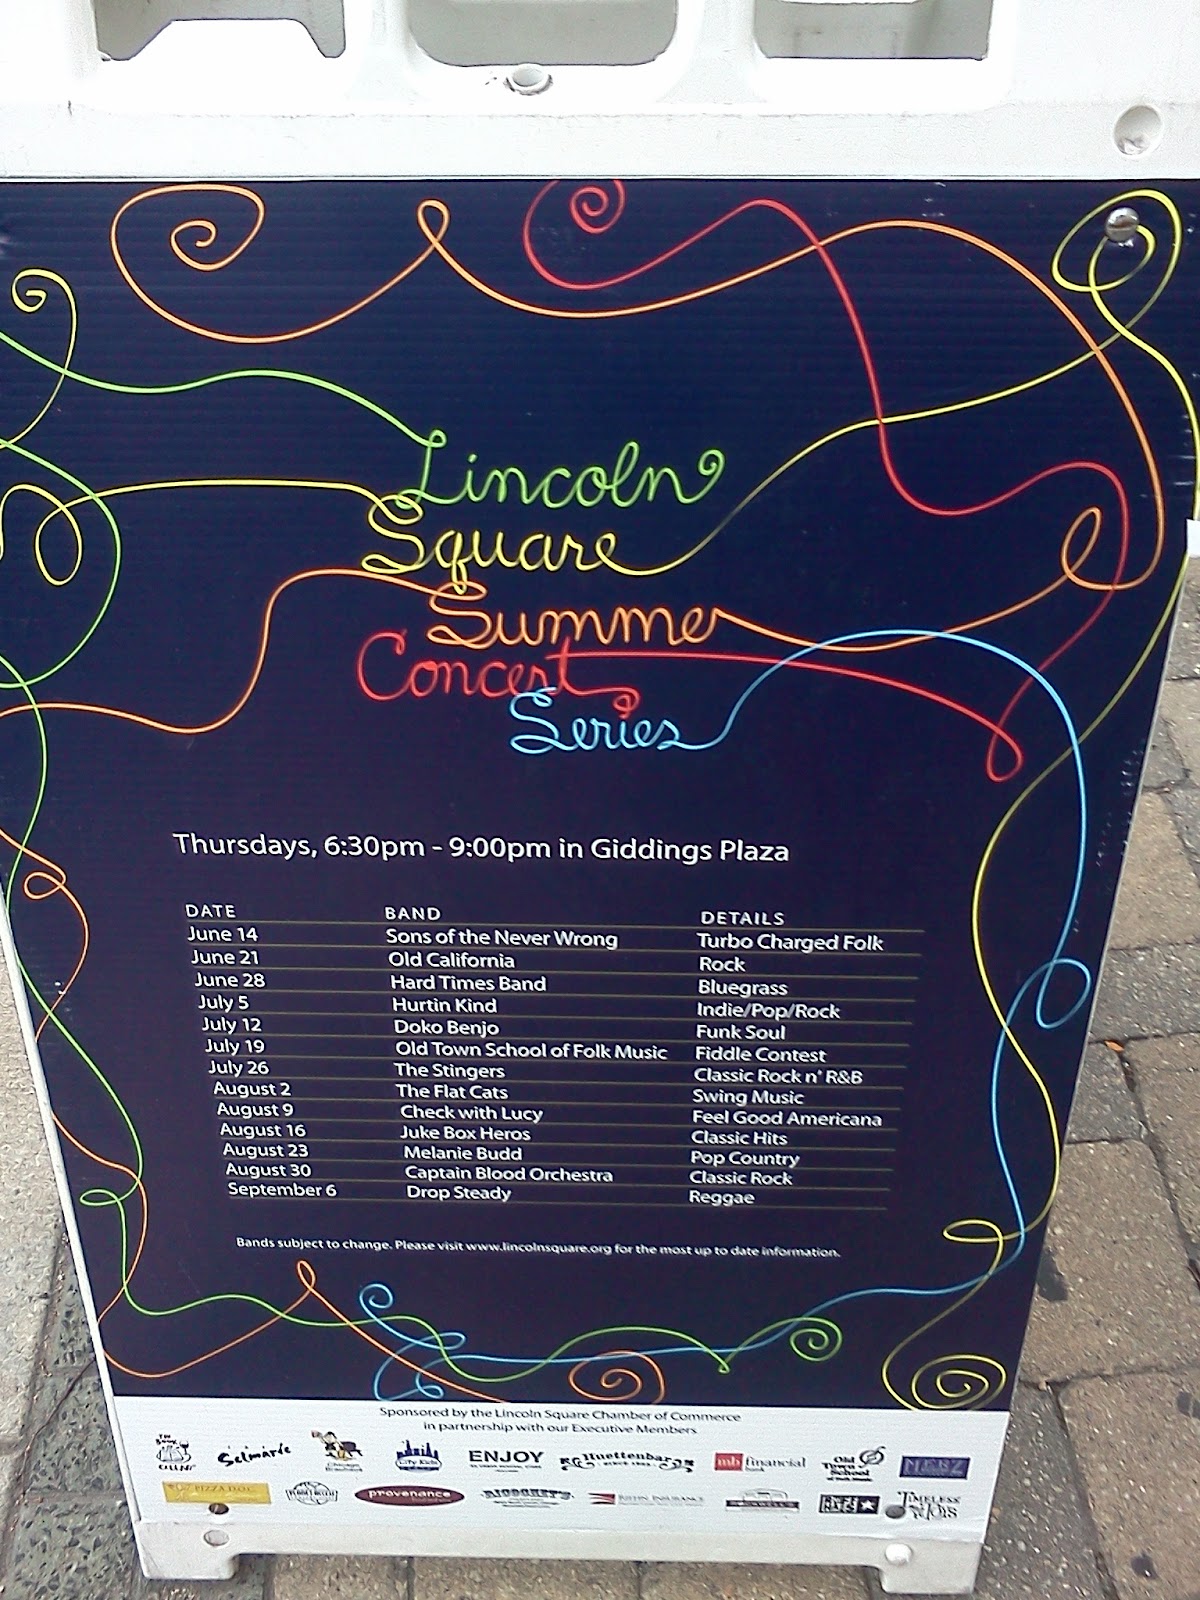 Lincoln
Square
Summer
Concert
Series
Thursdays, 6:30pm - 9:00pm in Giddings Plaza
DATE BAND DETAILS
June 14 Sons of the Never Wrong Turbo Charged Folk
June 21 Old California Rock
June 28 Hard Times Band Bluegrass
July 5 Hurtin Kind Indie/Pop/Rock
July 12 Doko Benjo Funk Soul
July 19 Old Town School of Folk Music Fiddle Contest
July 26 The Stingers Classic Rock n' R&B
August 2 The Flat Cats Swing Music
August 9 Check with Lucy Feel Good Americana
August 16 Juke Box Heros Classic Hits
August 23 Melanie Budd Pop Country
August 30 Captain Blood Orchestra Classic Rock
September 6 Drop Steady Reggae
Bands subject to change. Please visit www.lincolnsquare.org for the most up to date information.
Sponsored by the Lincoln Square Chamber of Commerce
in partnership with our Executive Members
Selmarie
City Kids
ENJOY
Huettenbar
mb financial
bank
Old
Town
School
MERZ
PIZZA D.O.C.
provenance
RICOCHET'S
INSURANCE
TIMELESS
TOYS